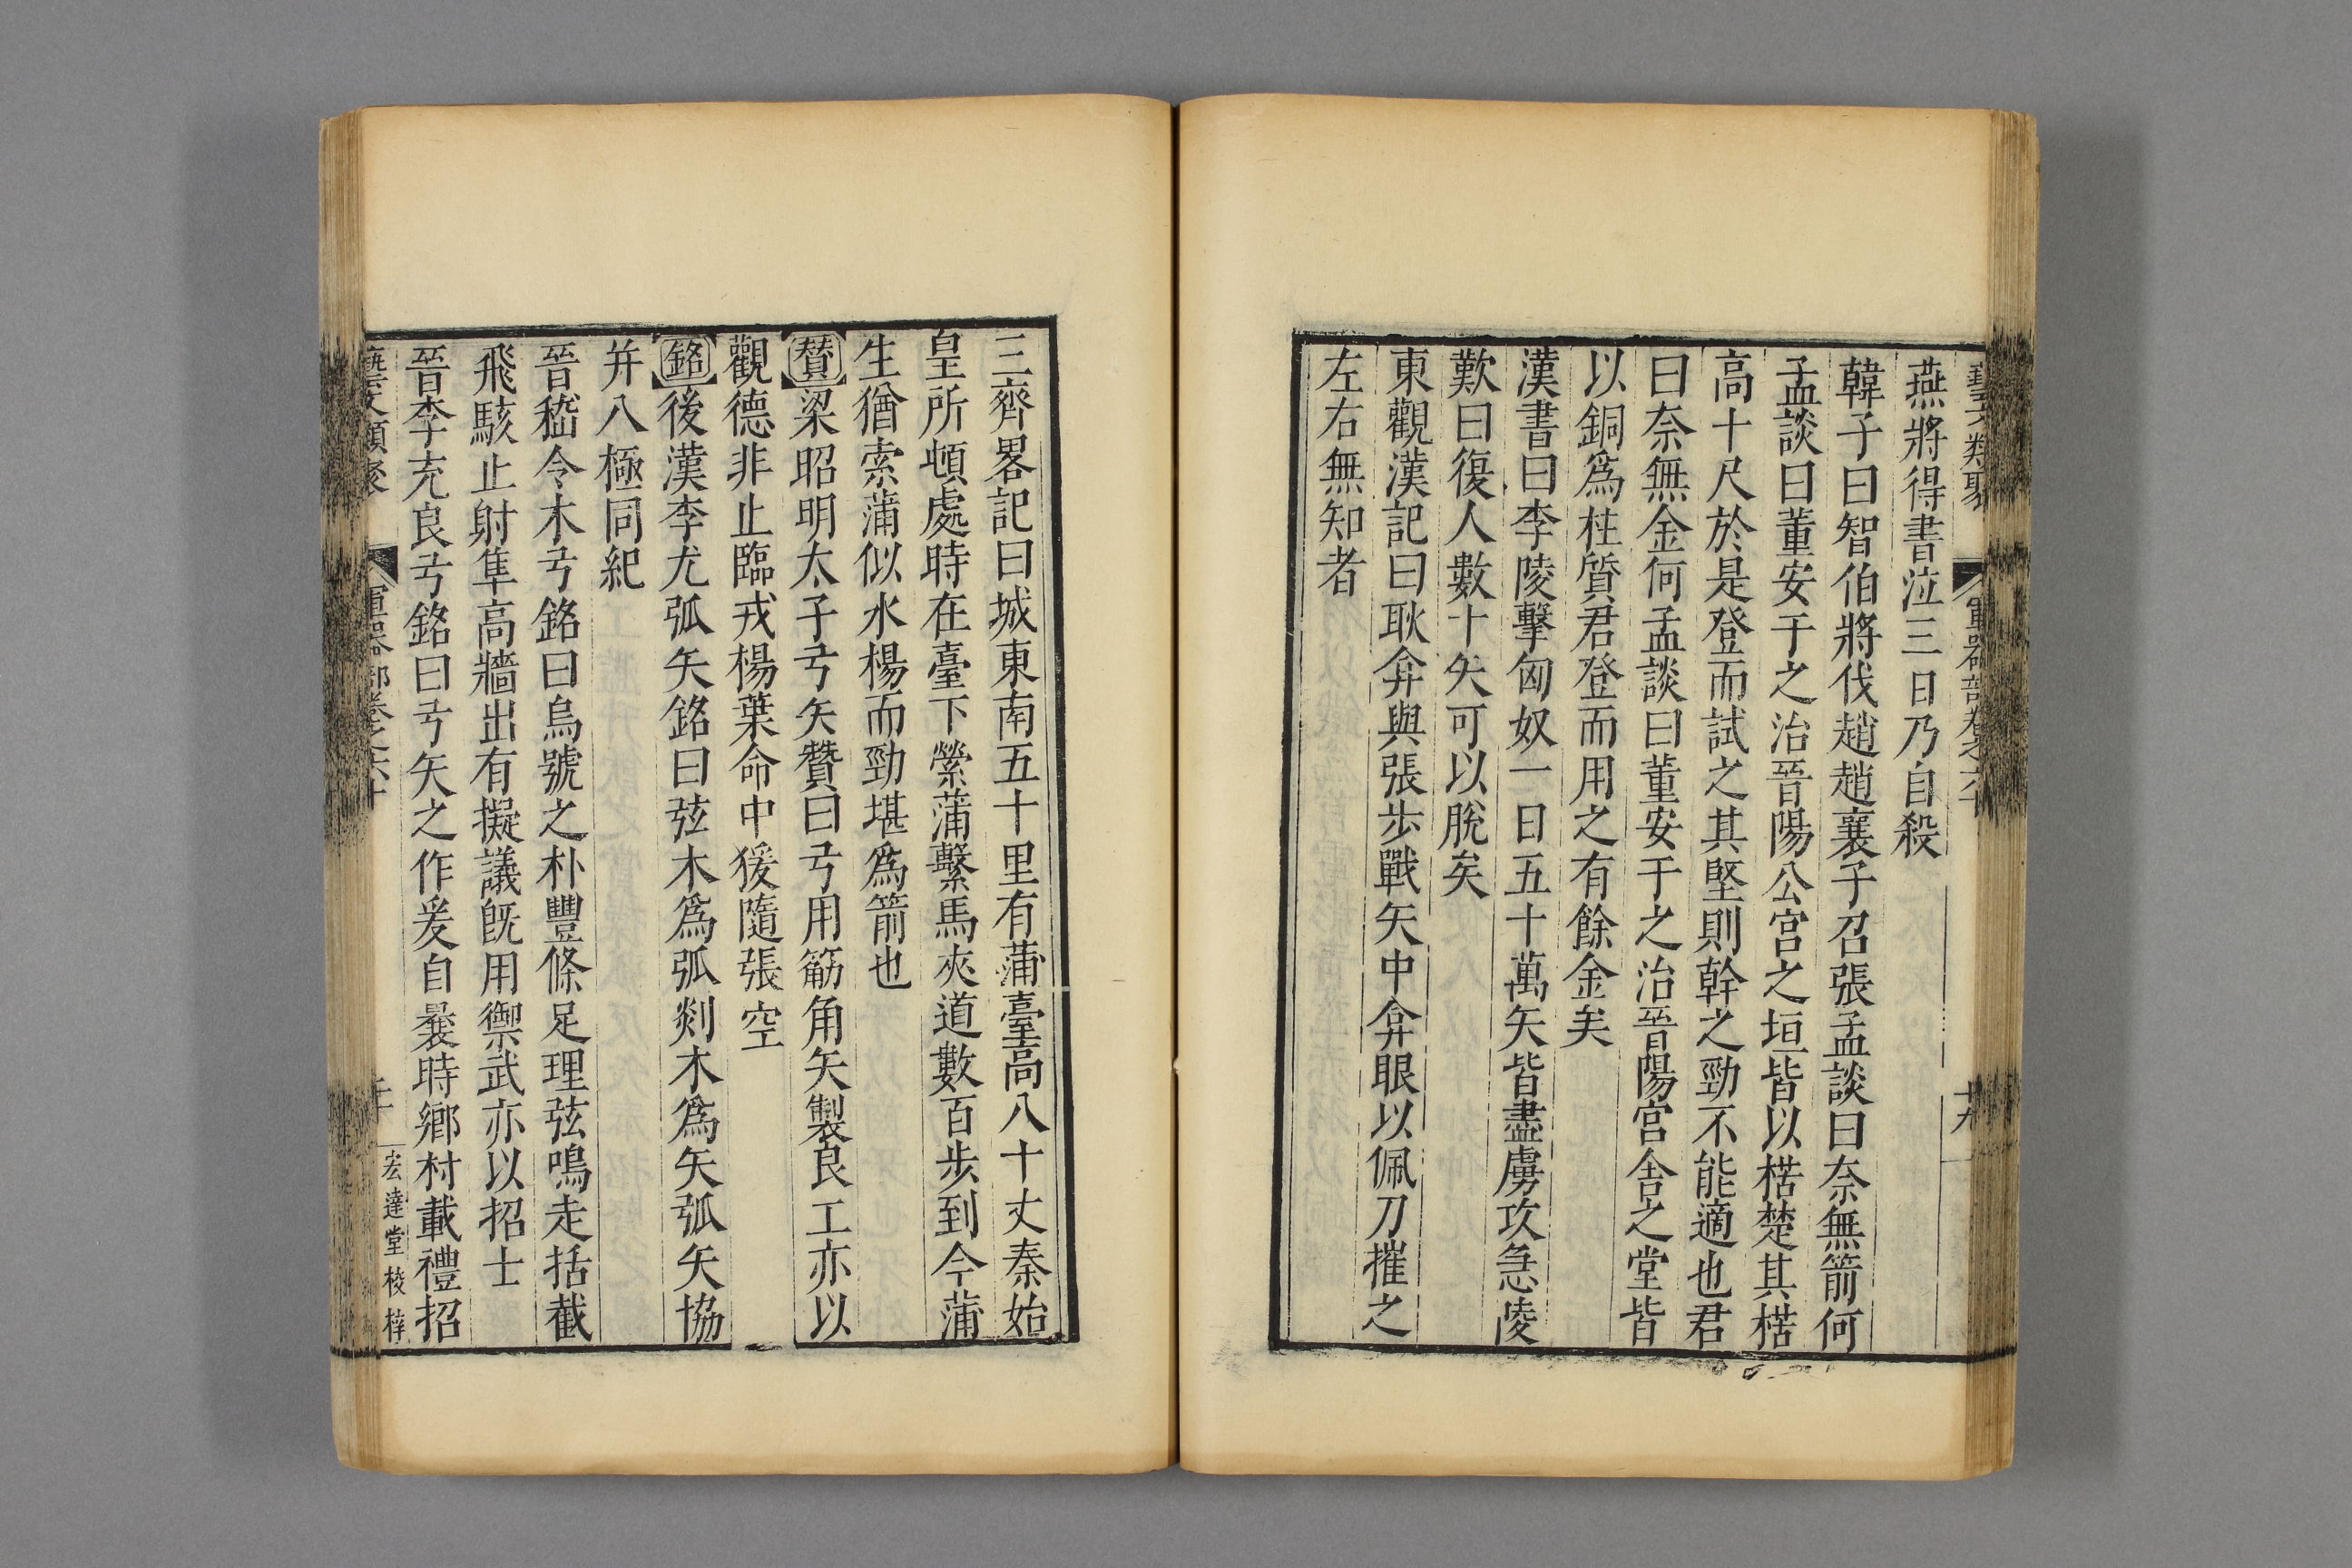 燕將得書泣三日乃自殺
韓子曰智伯將伐趙趙襄子召張孟談曰奈無箭何
孟談曰董安于之治晉陽公宮之垣皆以楛楚其楛
高十尺於是登而試之其堅則幹之勁不能適也君
曰奈無金何孟談曰董安于之治晉陽宮舍之堂皆
以銅爲柱質君登而用之有餘金矣
漢書曰李陵擊匈奴一日五十萬矢皆盡虜攻急陵
歎曰復人數十矢可以脫矣
東觀漢記曰耿弇與張步戰矢中弇眼以佩刀摧之
左右無知者
三齊畧記曰城東南五十里有蒲臺高八十丈秦始
皇所頓處時在臺下縈蒲繫馬夾道數百步到今蒲
生猶索蒲似水楊而勁堪爲箭也
贊梁昭明太子弓矢贊曰弓用筯角矢製良工亦以
觀德非止臨戎楊葉命中猨隨張空
銘後漢李尤弧矢銘曰弦木爲弧剡木爲矢弧矢協
并八極同紀
晉嵇令木弓銘曰烏號之朴豐條足理弦鳴走括截
飛駭止射隼高牆出有擬議旣用禦武亦以招士
晉李充良弓銘曰弓矢之作爰自曩時鄉村載禮招
藝文類聚 軍器部卷之六十
宏達堂校梓